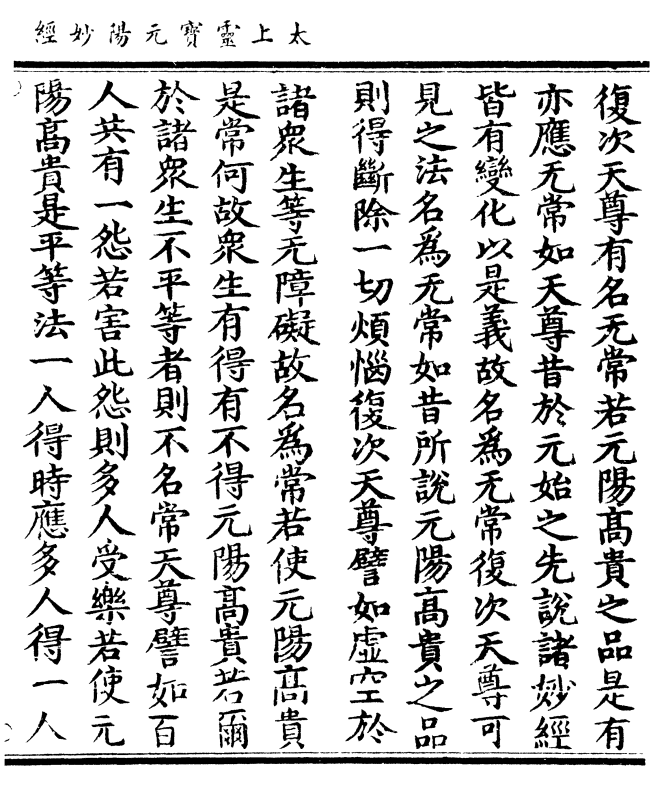 太上靈寳元陽妙經
復次天尊有名无常若元陽髙貴之品是有
亦應无常如天尊昔於元始之先說諸妙經
皆有變化以是義故名爲无常復次天尊可
見之法名爲无常如昔所說元陽髙貴之品
則得斷除一切煩惱復次天尊譬如虛空於
諸衆生等无障礙故名爲常若使元陽髙貴
是常何故衆生有得有不得元陽髙貴若爾
於諸衆生不平等者則不名常天尊譬如百
人共有一怨若害此怨則多人受樂若使元
陽髙貴是平等法一人得時應多人得一人